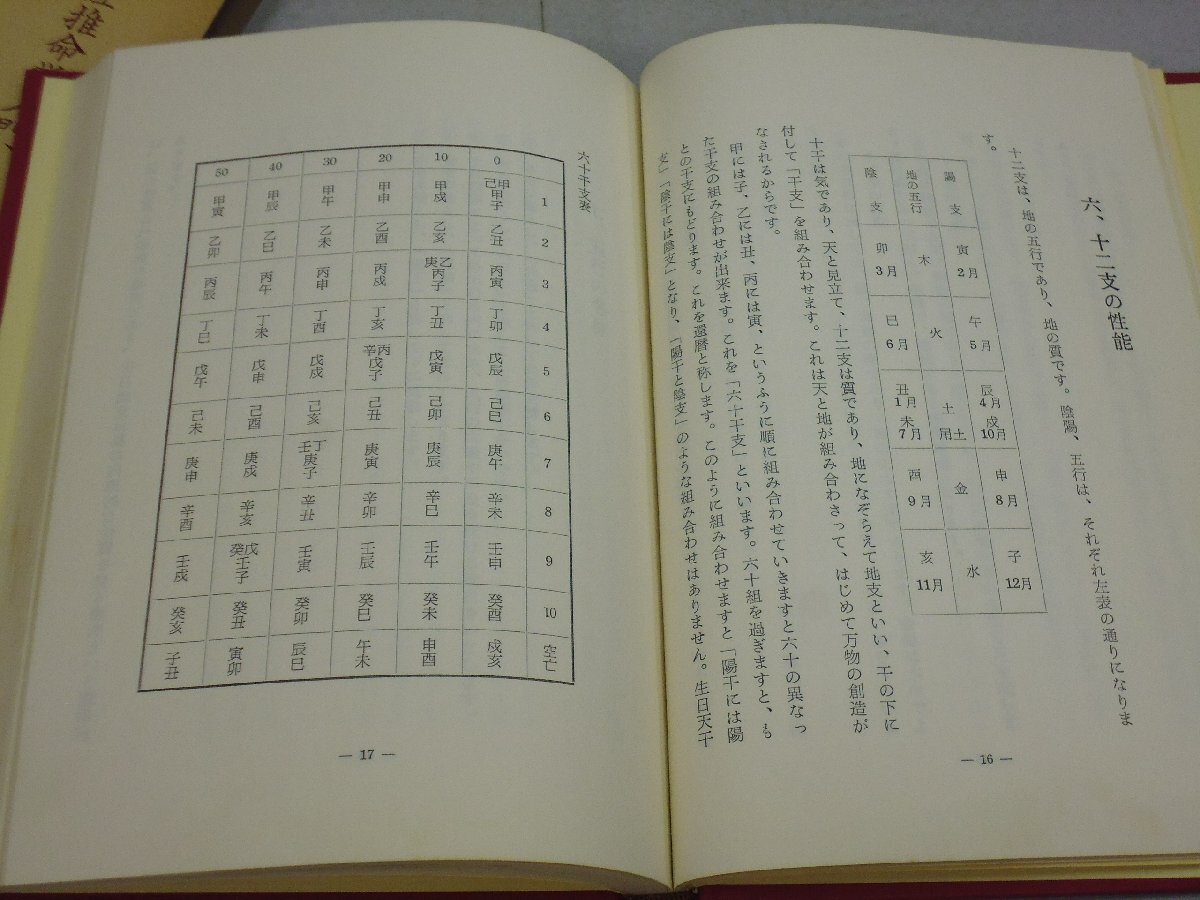 推命
六、十二支の性能
十二支は、地の五行であり、地の質です。陰陽、五行は、それぞれ左表の通りになりま
す。
陽支 寅2月 午5月 辰4月 戌10月 申8月 子12月
地の五行 木 火 土 土用 金 水
陰支 卯3月 巳6月 丑1月 未7月 酉9月 亥11月
十干は気であり、天と見立て、十二支は質であり、地になぞらえて地支といい、干の下に
付して「干支」を組み合わせます。これは天と地が組み合わさって、はじめて万物の創造が
なされるからです。
甲には子、乙には丑、丙には寅、というふうに順に組み合わせていきますと六十の異なっ
た干支の組み合わせが出来ます。これを「六十干支」といいます。六十組を過ぎますと、も
との干支にもどります。これを還暦と称します。このように組み合わせますと「陽干には陽
支」「陰干には陰支」となり、「陽干と陰支」のような組み合わせはありません。生日天干
— 16 —
六十干支表
50 40 30 20 10 0
甲寅 甲辰 甲午 甲申 甲戌 己甲甲子 1
乙卯 乙巳 乙未 乙酉 乙亥 乙丑 2
丙辰 丙午 丙申 丙戌 庚乙丙子 丙寅 3
丁巳 丁未 丁酉 丁亥 丁丑 丁卯 4
戊午 戊申 戊戌 辛丙戊子 戊寅 戊辰 5
己未 己酉 己亥 己丑 己卯 己巳 6
庚申 庚戌 壬丁庚子 庚寅 庚辰 庚午 7
辛酉 辛亥 辛丑 辛卯 辛巳 辛未 8
壬戌 癸戊壬子 壬寅 壬辰 壬午 壬申 9
癸亥 癸丑 癸卯 癸巳 癸未 癸酉 10
子丑 寅卯 辰巳 午未 申酉 戌亥 空亡
— 17 —